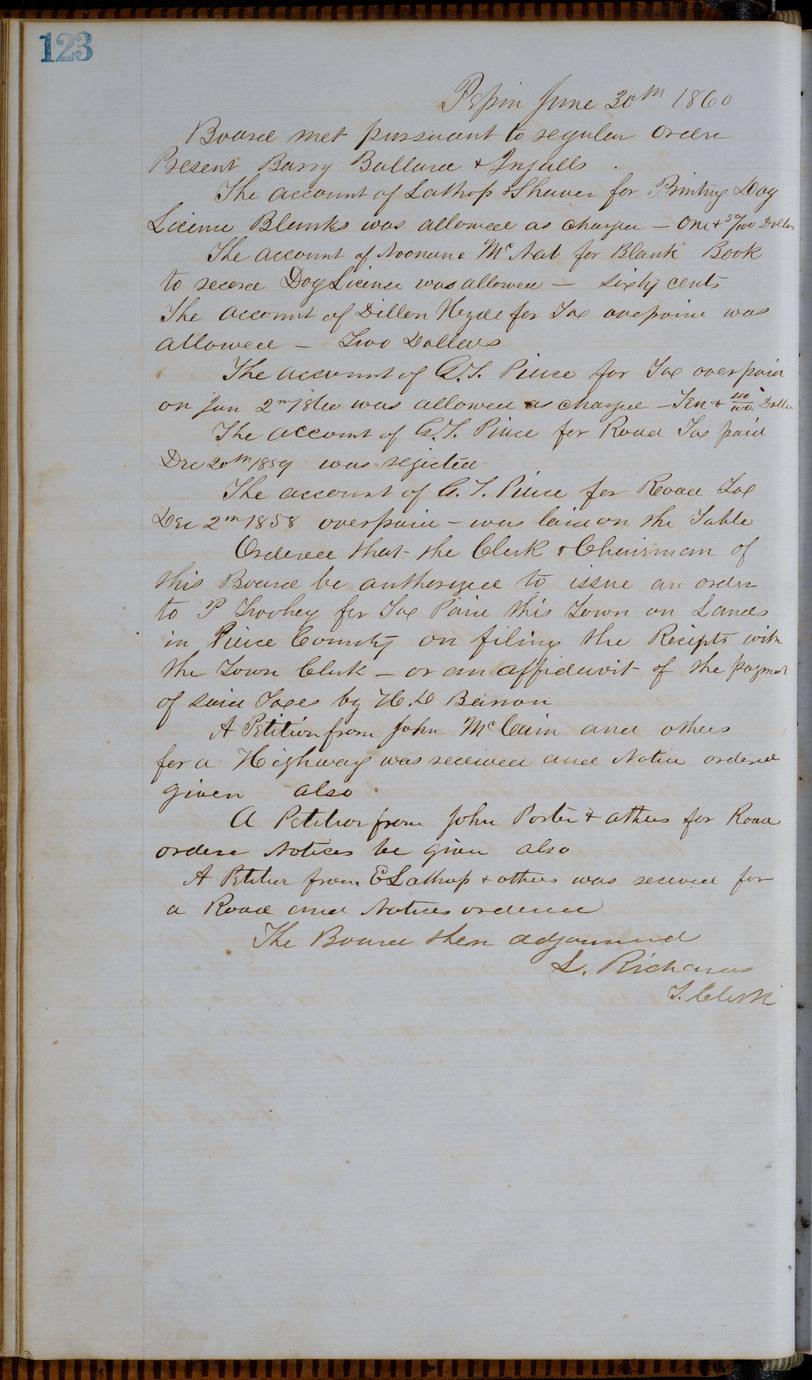 123
Pepin June 30th 1860
Board met pursuant to regular order
Present Barry Ballard & Ingalls.
The account of Lathrop & Shaver for Printing Dog
Licence Blanks was allowed as charged — One + 50/100 Dollars
The account of Noonan & McNab for Blank Book
to record Dog Licence was allowed — sixty cents
The account of Dillon Hyde for Tax overpaid was
allowed — Two Dollars
The account of G.T. Pierce for Tax overpaid
on Jan 2nd 1860 was allowed as charged — Ten + 40/100 Dollars
The account of G.T. Pierce for Road Tax paid
Dec 20th 1859 was rejected
The account of G.T. Pierce for Road Tax
Dec 2nd 1858 overpaid — was laid on the Table
Ordered that the Clerk & Chairman of
this Board be authorized to issue an order
to P Twohey for Tax Paid this Town on Lands
in Pierce County on filing the Recipts with
the Town Clerk — or an affidavit of the payment
of said Taxes by H.D Barron
A Petition from John McCain and others
for a Highway was received and Notice ordered
given also
A Petition from John Porter & others for Road
ordered Notices be given also
A Petition from E Lathrop & others was received for
a Road and Notices ordered
The Board then adjourned
L. Richards
T. Clerk